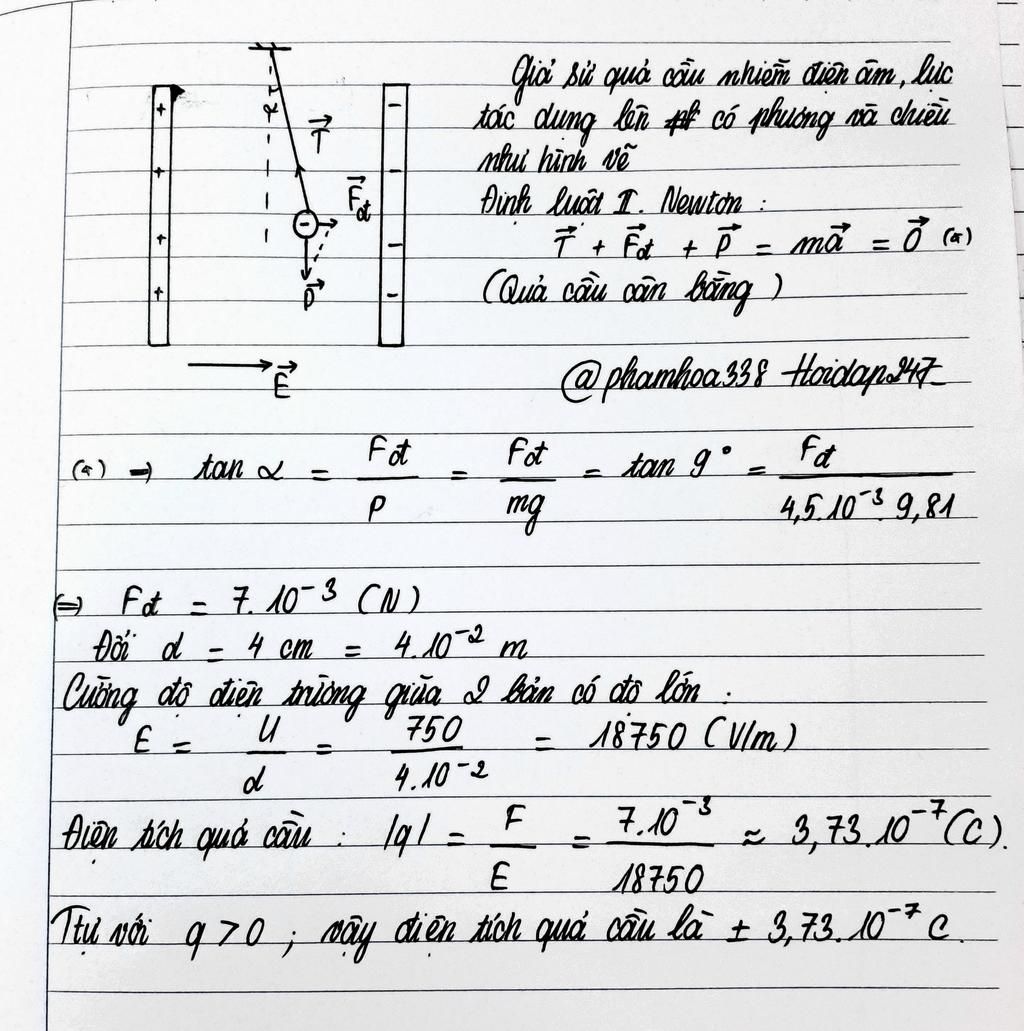 Giả sử quả cầu nhiễm điện âm, lực
tác dụng lên có phương và chiều
như hình vẽ
Định luật II. Newton :
T⃗ + F⃗đ + P⃗ = ma⃗ = O⃗ (*)
(Quả cầu cân bằng)
+ + + +
α
T⃗
F⃗đ
-
P⃗
- - - -
E⃗
@phamhoa338 Hoidap247
(*) → tan α = Fđ / P = Fđ / mg = tan 9° = Fđ / 4,5.10⁻³.9,81
⇔ Fđ = 7.10⁻³ (N)
Đổi d = 4 cm = 4.10⁻² m
Cường độ điện trường giữa 2 bản có độ lớn :
E = U / d = 750 / 4.10⁻² = 18750 (V/m)
Điện tích quả cầu : |q| = F / E = 7.10⁻³ / 18750 ≈ 3,73.10⁻⁷ (C).
Ttự với q > 0 ; vậy điện tích quả cầu là ± 3,73.10⁻⁷ C.